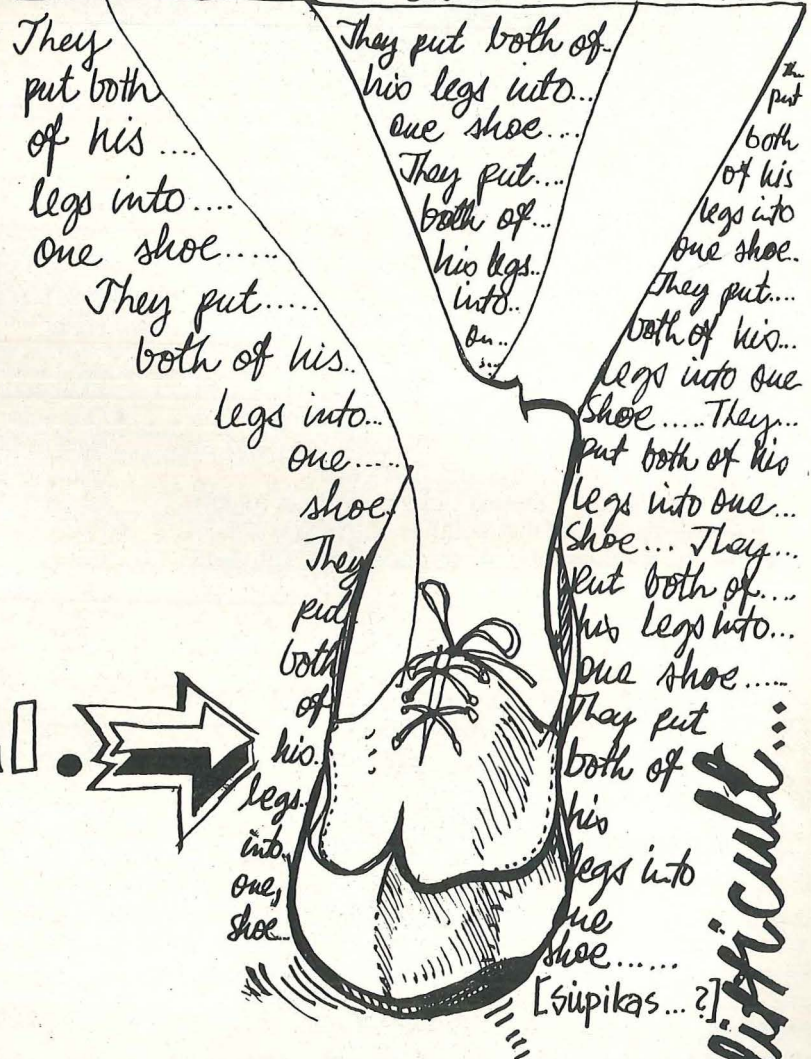 They
put both
of his ....
legs into....
one shoe.....
They put.....
both of his..
legs into...
one.....
shoe.
They
put
both
of
his.
legs.
into.
one,
shoe...
They put both of..
his legs into...
one shoe....
They put....
both of...
his legs..
into..
on...
s...
put
both
of his
legs into
one shoe.
They put....
both of his...
legs into one
Shoe..... They...
put both of his
legs into one...
Shoe... They...
put both of....
his legs into...
one shoe......
They put
both of
his
legs into
one
shoe......
[supikas...?]
difficult...